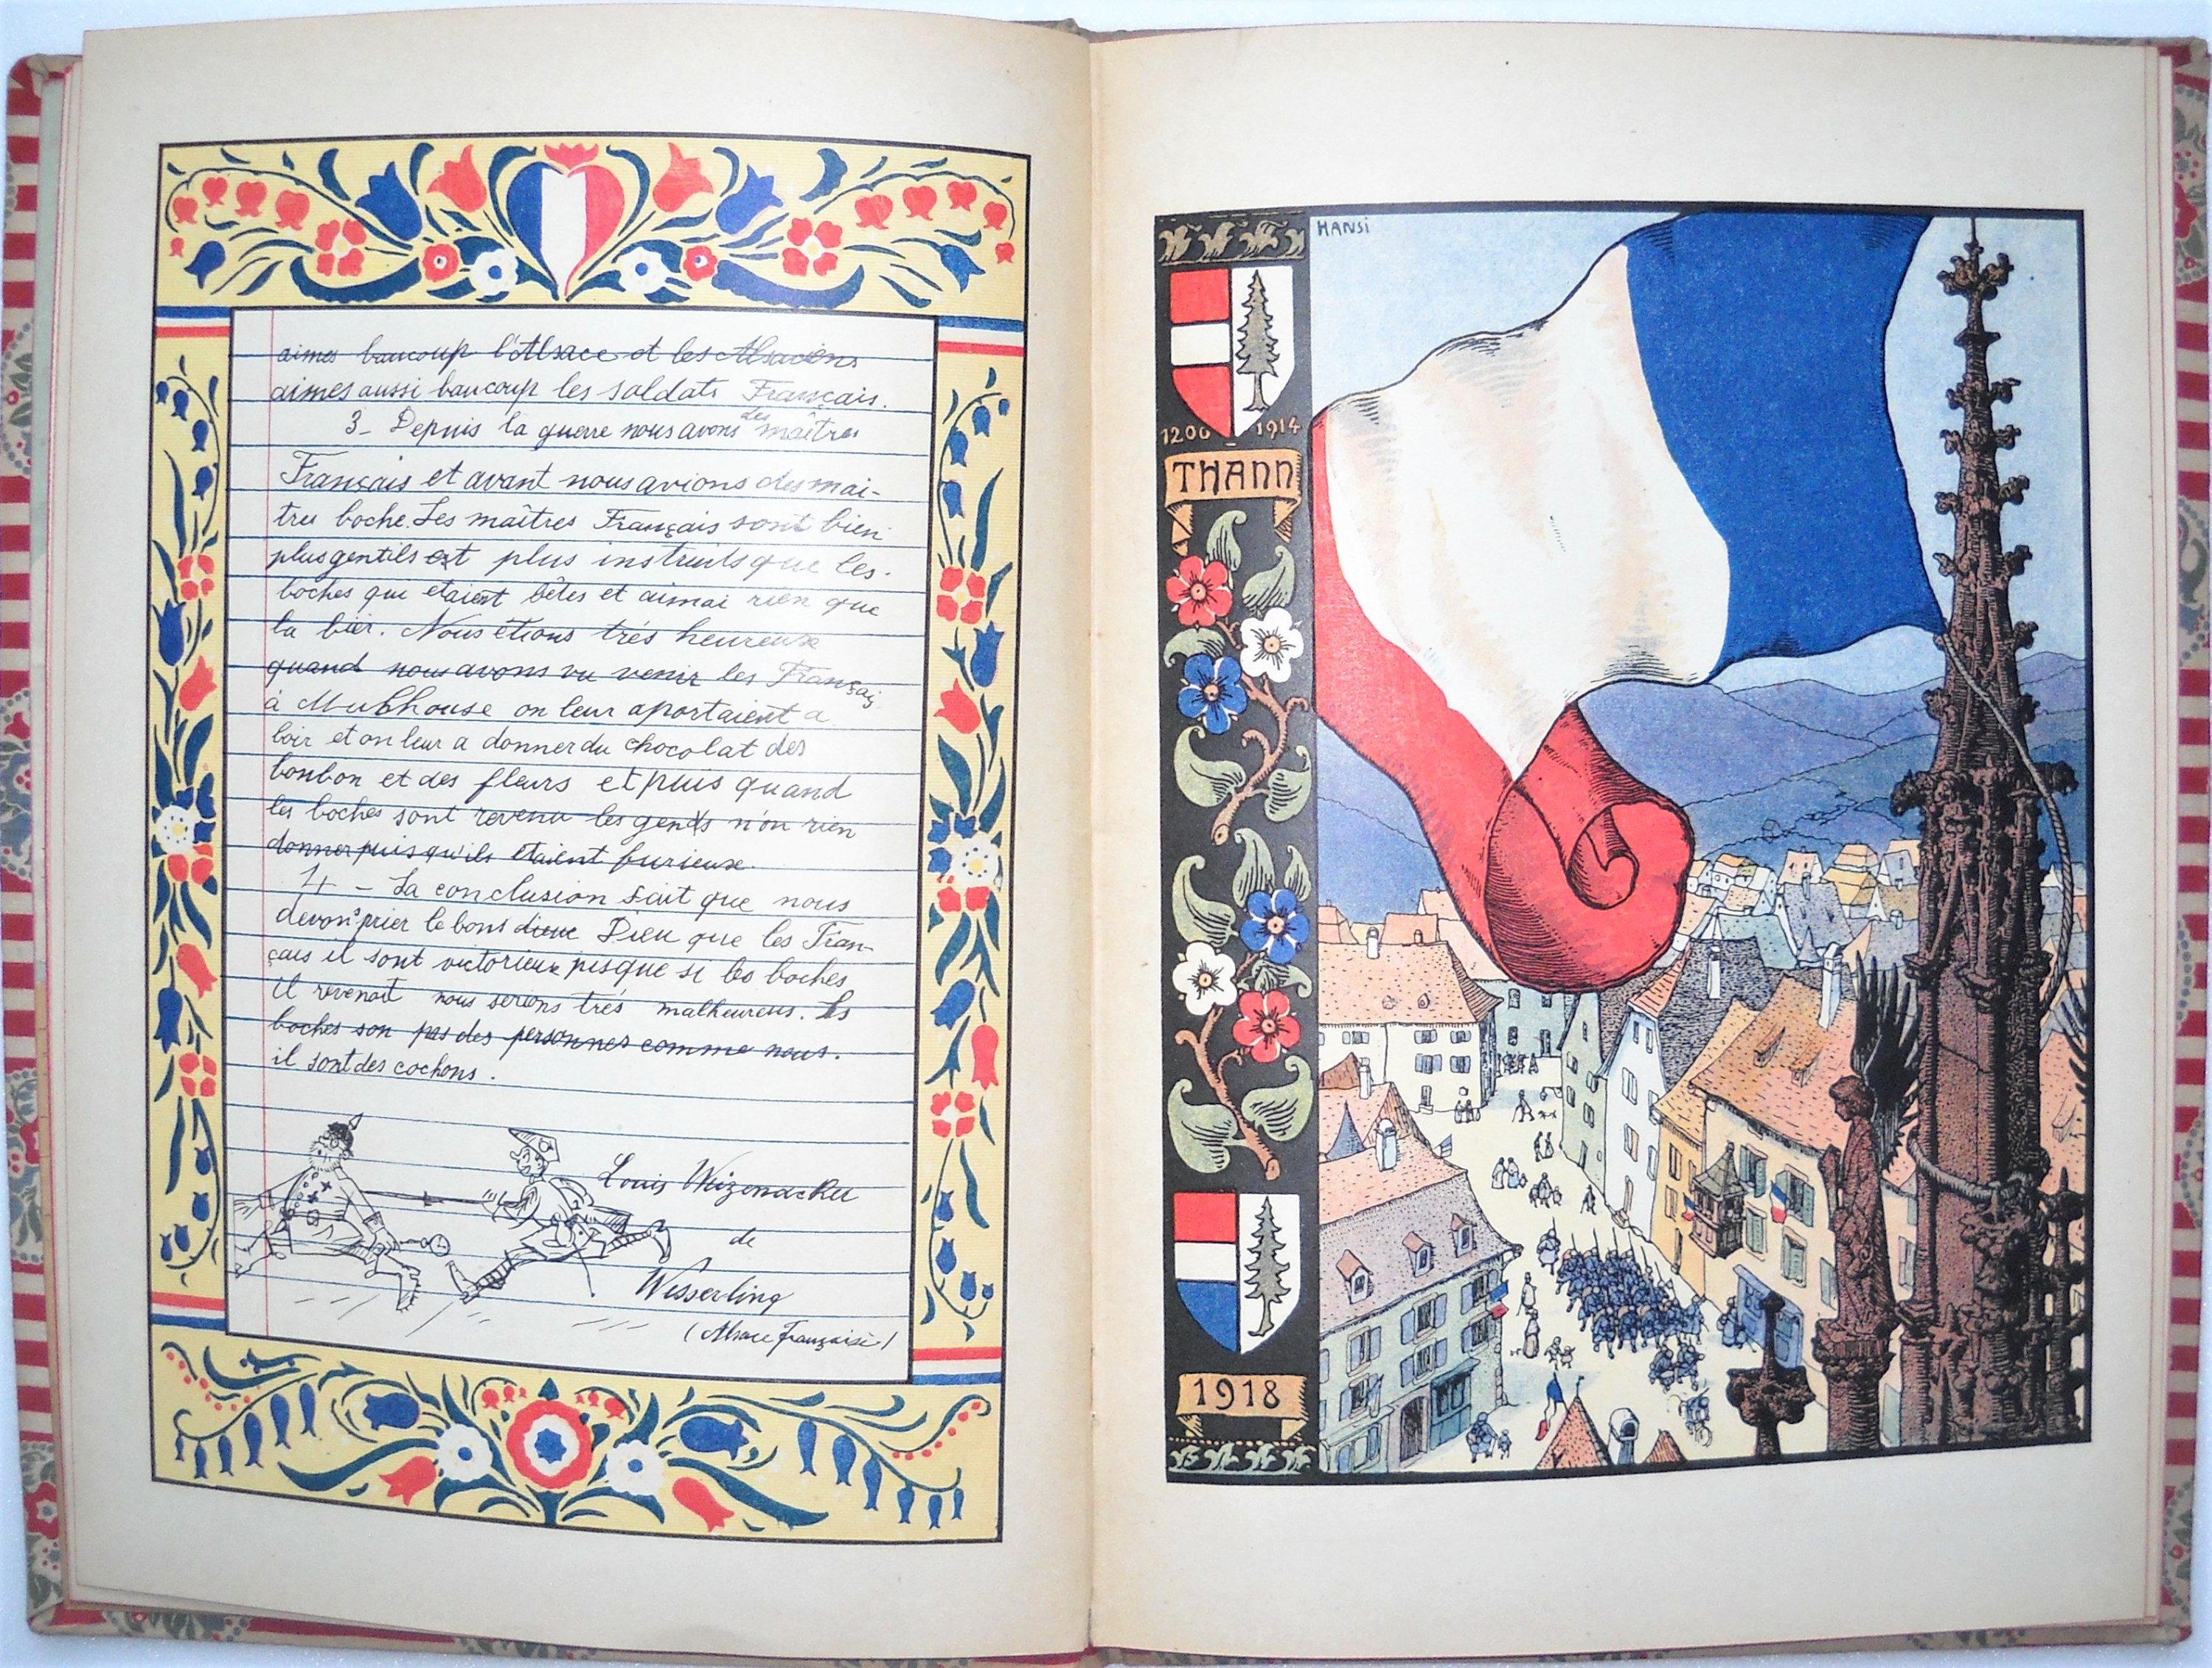 aimes beaucoup l'Alsace et les Alsaciens
aimes aussi baucoup les soldats Français.
3- Depuis la guerre nous avons des maîtres
Français et avant nous avions des mai-
tres boche. Les maîtres Français sont bien
plus gentils et plus instruits que les
boches qui etaient bêtes et aimai rien que
la bier. Nous étions trés heureuse
quand nous avons vu venir les Français
à Mulhouse on leur aportaient a
boir et on leur a donner du chocolat des
bonbon et des fleurs et puis quand
les boches sont revenu les gends n'on rien
donner puis qu'ils etaient furieuse.
4 - La conclusion fait que nous
devons prier le bons dieue Dieu que les Fran-
çais il sont victorieux pisque si les boches
il revenait nous serions trés malheureus. Les
boches son pas des personnes comme nous.
il sont des cochons.
Louis
de
Wesserling
(Alsace Française)
HANSI
1206 - 1914
THANN
1918